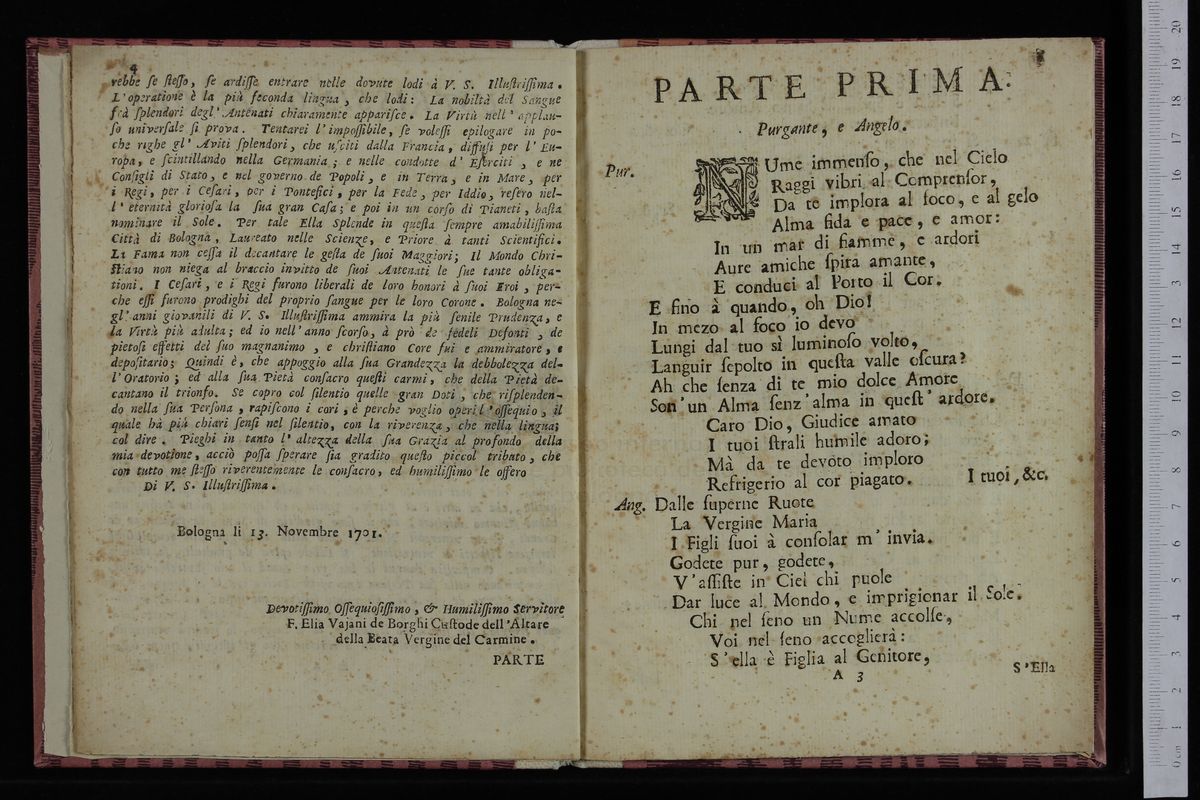 4
rebbe ſe ſteſſo, ſe ardiſſe entrare nelle dovute lodi à V. S. Illuſtriſſima.
L'operatione è la più feconda lingua, che lodi: La nobiltà del Sangue
frà ſplendori degl' Antenati chiaramente appariſce. La Virtù nell' applau-
ſo univerſale ſi prova. Tentarei l'impoſſibile, ſe voleſſi epilogare in po-
che righe gl' Aviti ſplendori, che uſciti dalla Francia, diffuſi per l' Eu-
ropa, e ſcintillando nella Germania; e nelle condotte d' Eſerciti, e ne
Conſigli di Stato, e nel governo de Popoli, e in Terra, e in Mare, per
i Regi, per i Ceſari, per i Pontefici, per la Fede, per Iddio, reſero nel-
l' eternità glorioſa la ſua gran Caſa; e poi in un corſo di Pianeti, baſta
nominare il Sole. Per tale Ella Splende in queſta ſempre amabiliſſima
Città di Bologna, Laureato nelle Scienze, e Priore à tanti Scientifici.
La Fama non ceſſa il decantare le geſta de ſuoi Maggiori; Il Mondo Chri-
ſtiano non niega al braccio invitto de ſuoi Antenati le ſue tante obliga-
tioni. I Ceſari, e i Regi furono liberali de loro honori à ſuoi Eroi, per-
che eſſi furono prodighi del proprio ſangue per le loro Corone. Bologna ne-
gl' anni giovanili di V. S. Illuſtriſſima ammira la più ſenile Prudenza, e
la Virtù più adulta; ed io nell' anno ſcorſo, à prò de fedeli Defonti, de
pietoſi effetti del ſuo magnanimo, e chriſtiano Core fui e ammiratore, e
depoſitario; Quindi è, che appoggio alla ſua Grandezza la debbolezza del-
l' Oratorio; ed alla ſua Pietà conſacro queſti carmi, che della Pietà de-
cantano il trionfo. Se copro col ſilentio quelle gran Doti, che riſplenden-
do nella ſua Perſona, rapiſcono i cori, è perche voglio operi l'oſſequio, il
quale hà più chiari ſenſi nel ſilentio, con la riverenza, che nella lingua;
col dire. Pieghi in tanto l' altezza della ſua Grazia al profondo della
mia devotione, acciò poſſa ſperare ſia gradito queſto piccol tributo, che
con tutto me ſteſſo riverentemente le conſacro, ed humiliſſimo le offero
Di V. S. Illuſtriſſima.
Bologna li 13. Novembre 1701.
Devotiſſimo Oſſequioſiſſimo, & Humiliſſimo Servitore
F. Elia Vajani de Borghi Cuſtode dell'Altare
della Beata Vergine del Carmine.
PARTE
PARTE PRIMA.
Purgante, e Angelo.
Pur. NUme immenſo, che nel Cielo
Raggi vibri al Comprenſor,
Da te implora al foco, e al gelo
Alma fida e pace, e amor:
In un mar di fiamme, e ardori
Aure amiche ſpira amante,
E conduci al Porto il Cor.
E fino à quando, oh Dio!
In mezo al foco io devo
Lungi dal tuo sì luminoſo volto,
Languir ſepolto in queſta valle oſcura?
Ah che ſenza di te mio dolce Amore
Son'un Alma ſenz'alma in queſt' ardore.
Caro Dio, Giudice amato
I tuoi ſtrali humile adoro;
Mà da te devoto imploro
Refrigerio al cor piagato. I tuoi, &c.
Ang. Dalle ſuperne Ruote
La Vergine Maria
I Figli ſuoi à conſolar m' invia.
Godete pur, godete,
V'aſſiſte in Ciel chi puole
Dar luce al Mondo, e imprigionar il Sole.
Chi nel ſeno un Nume accolſe,
Voi nel ſeno accoglierà:
S'ella è Figlia al Genitore,
A 3
S'Ella